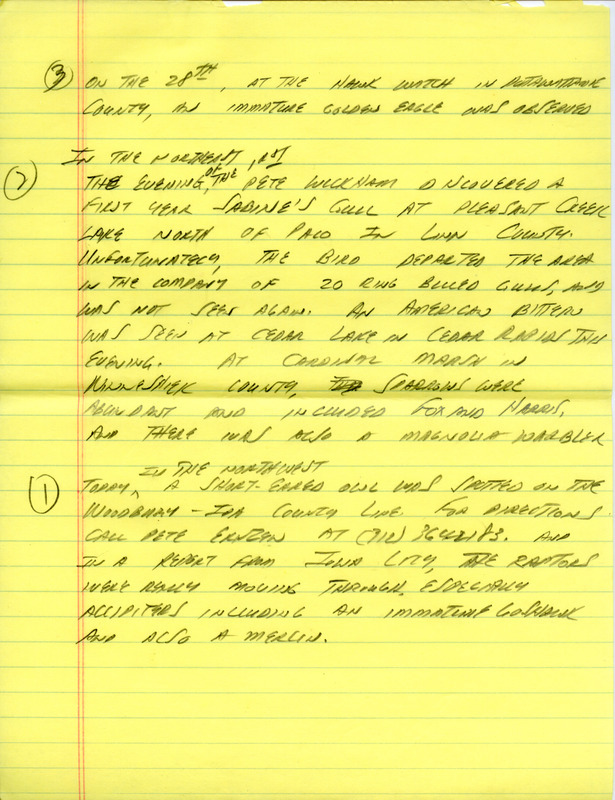 ③ ON THE 28TH, AT THE HAWK WATCH IN POTAWATTAMIE
COUNTY, AN IMMATURE GOLDEN EAGLE WAS OBSERVED
IN THE NORTHEAST,
② THE EVENING, OF THE PETE WICKHAM DISCOVERED A
FIRST YEAR SABINE'S GULL AT PLEASANT CREEK
LAKE NORTH OF PALO IN LINN COUNTY.
UNFORTUNATELY, THE BIRD DEPARTED THE AREA
IN THE COMPANY OF 20 RING BILLED GULLS, AND
WAS NOT SEEN AGAIN. AN AMERICAN BITTERN
WAS SEEN AT CEDAR LAKE IN CEDAR RAPIDS THIS
EVENING. AT CARDINAL MARSH IN
WINNESHIEK COUNTY, SPARROWS WERE
ABUNDANT AND INCLUDED FOX AND HARRIS,
AND THERE WAS ALSO A MAGNOLIA WARBLER
IN THE NORTHWEST
① TODAY, A SHORT-EARED OWL WAS SPOTTED ON THE
WOODBURY-IDA COUNTY LINE. FOR DIRECTIONS
CALL PETE ERNZEN AT (712) AND
IN A REPORT FROM IOWA CITY, THE RAPTORS
WERE REALLY MOVING THROUGH, ESPECIALLY
ACCIPITERS INCLUDING AN IMMATURE GOSHAWK
AND ALSO A MERLIN.